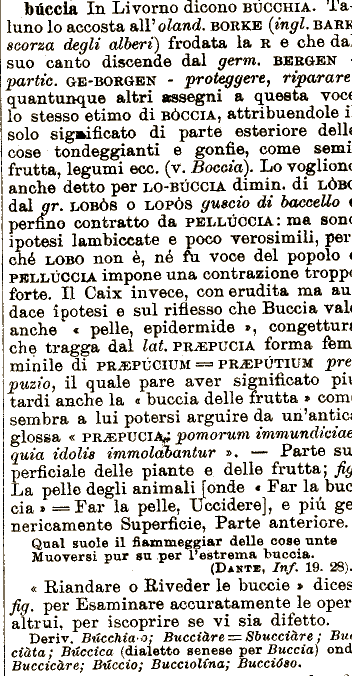 búccia In Livorno dicono BÚCCHIA. Ta-
luno lo accosta all'oland. BORKE (ingl. BARK
scorza degli alberi) frodata la R e che da
suo canto discende dal germ. BERGEN -
partic. GE-BORGEN - proteggere, riparare,
quantunque altri assegni a questa voce
lo stesso etimo di BÒCCIA, attribuendole i
solo significato di parte esteriore delle
cose tondeggianti e gonfie, come semi,
frutta, legumi ecc. (v. Boccia). Lo vogliono
anche detto per LO-BÚCCIA dimin. di LÒBO
dal gr. LOBÒS o LOPÒS guscio di baccello e
perfino contratto da PELLÚCCIA: ma sono
ipotesi lambiccate e poco verosimili, per-
ché LOBO non è, né fu voce del popolo e
PELLÚCCIA impone una contrazione troppo
forte. Il Caix invece, con erudita ma au-
dace ipotesi e sul riflesso che Buccia vale
anche « pelle, epidermide », congettura
che tragga dal lat. PRÆPUCIA forma fem-
minile di PRÆPÚCIUM = PRÆPÚTIUM pre-
puzio, il quale pare aver significato più
tardi anche la « buccia delle frutta » come
sembra a lui potersi arguire da un'antica
glossa « PRÆPUCIA, pomorum immundiciae
quia idolis immolabantur ». — Parte su-
perficiale delle piante e delle frutta; fig.
La pelle degli animali [onde « Far la buc-
cia » = Far la pelle, Uccidere], e piú ge-
nericamente Superficie, Parte anteriore.
Qual suole il fiammeggiar delle cose unte
Muoversi pur su per l'estrema buccia.
(DANTE, Inf. 19. 28).
« Riandare o Riveder le buccie » dices
fig. per Esaminare accuratamente le oper
altrui, per iscoprire se vi sia difetto.
Deriv. Búcchia-o; Bucciàre = Sbucciàre; Buc-
ciàta; Búccica (dialetto senese per Buccia) ond
Buccicàre; Búccio; Bucciolína; Bucciòso.